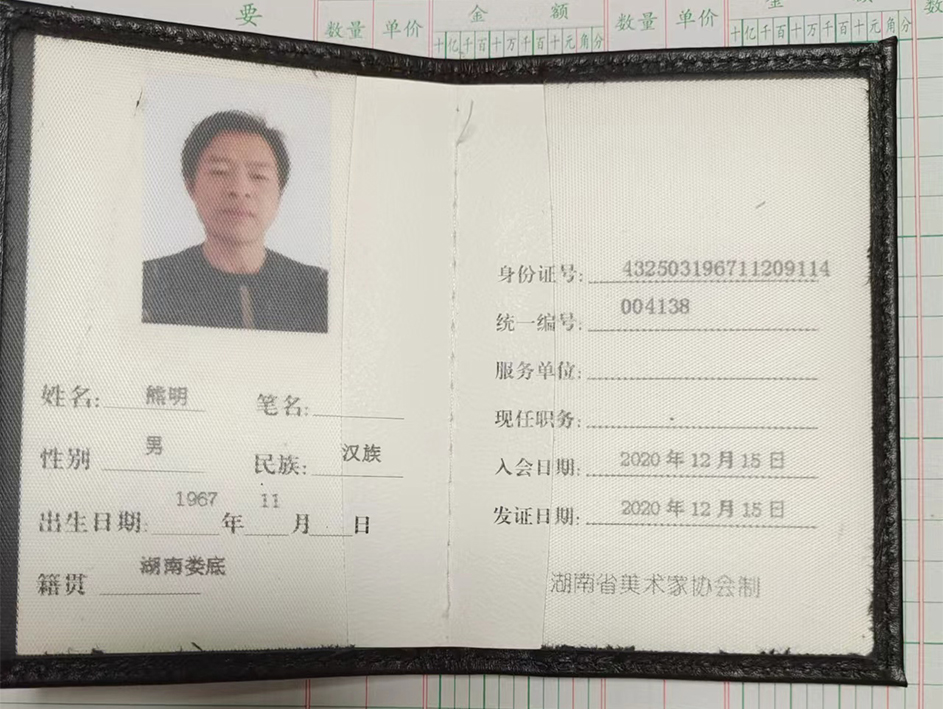 要 数量 单价 金额 数量 单价 金额 数
十亿千百十万千百十元角分 十亿千百十万千百十元角分
姓名: 熊明 笔名:
性别 男 民族: 汉族
出生日期: 1967 年 11 月 日
籍贯 湖南娄底
身份证号: 432503196711209114
统一编号: 004138
服务单位:
现任职务:
入会日期: 2020 年 12 月 15 日
发证日期: 2020 年 12 月 15 日
湖南省美术家协会制